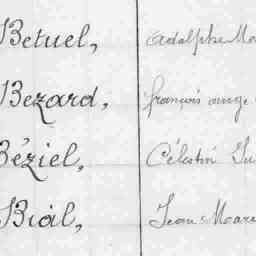 Betuel, Adolphe
Bezard, françois ange
Béziel, Célestin
Bial, Jean Marc